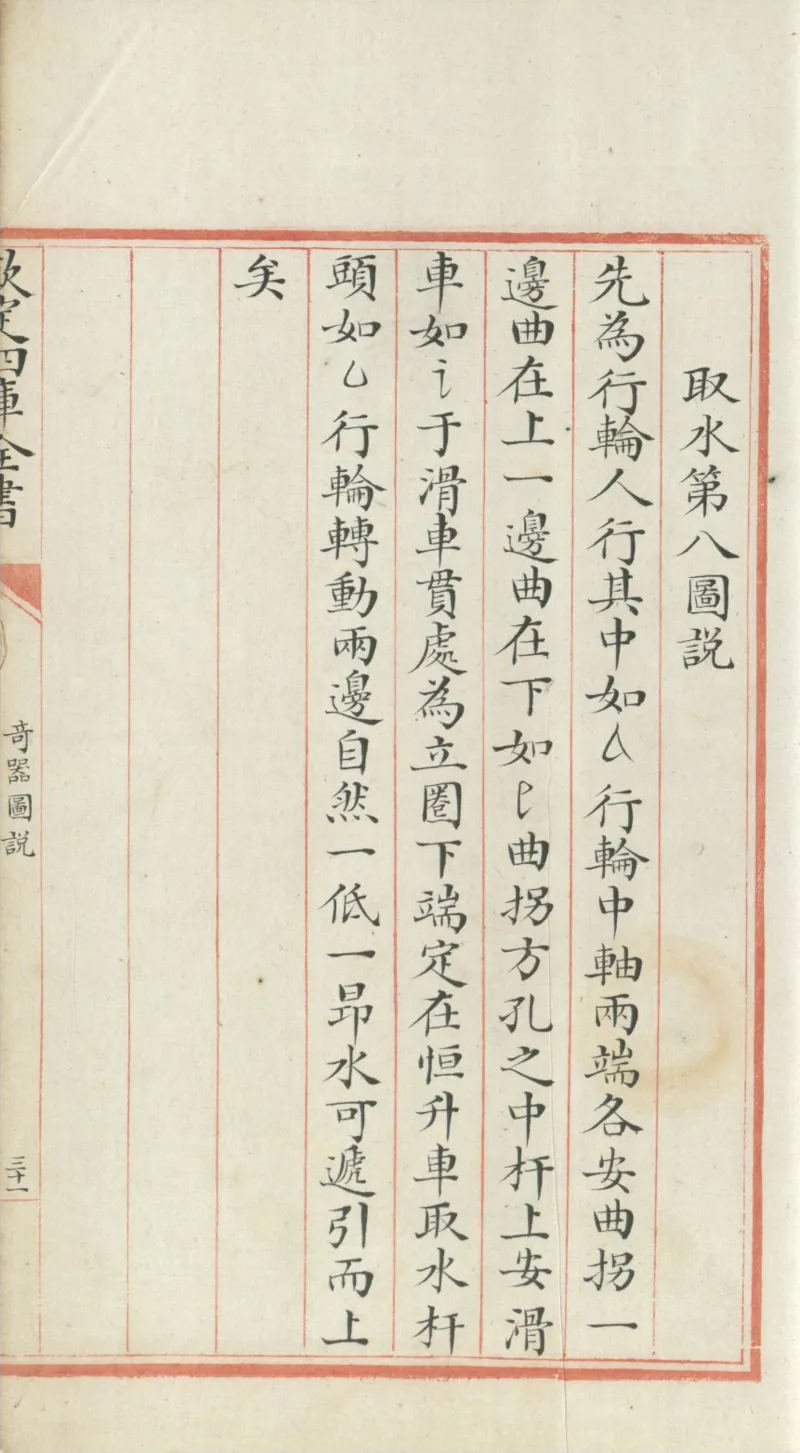 取水第八圖説
先為行輪人行其中如厶行輪中軸兩端各安曲拐一
邊曲在上一邊曲在下如㔾曲拐方孔之中杆上安滑
車如讠于滑車貫處為立圈下端定在恒升車取水杆
頭如乚行輪轉動兩邊自然一低一昂水可遞引而上
矣
欽定四庫全書
奇器圖説
三十一